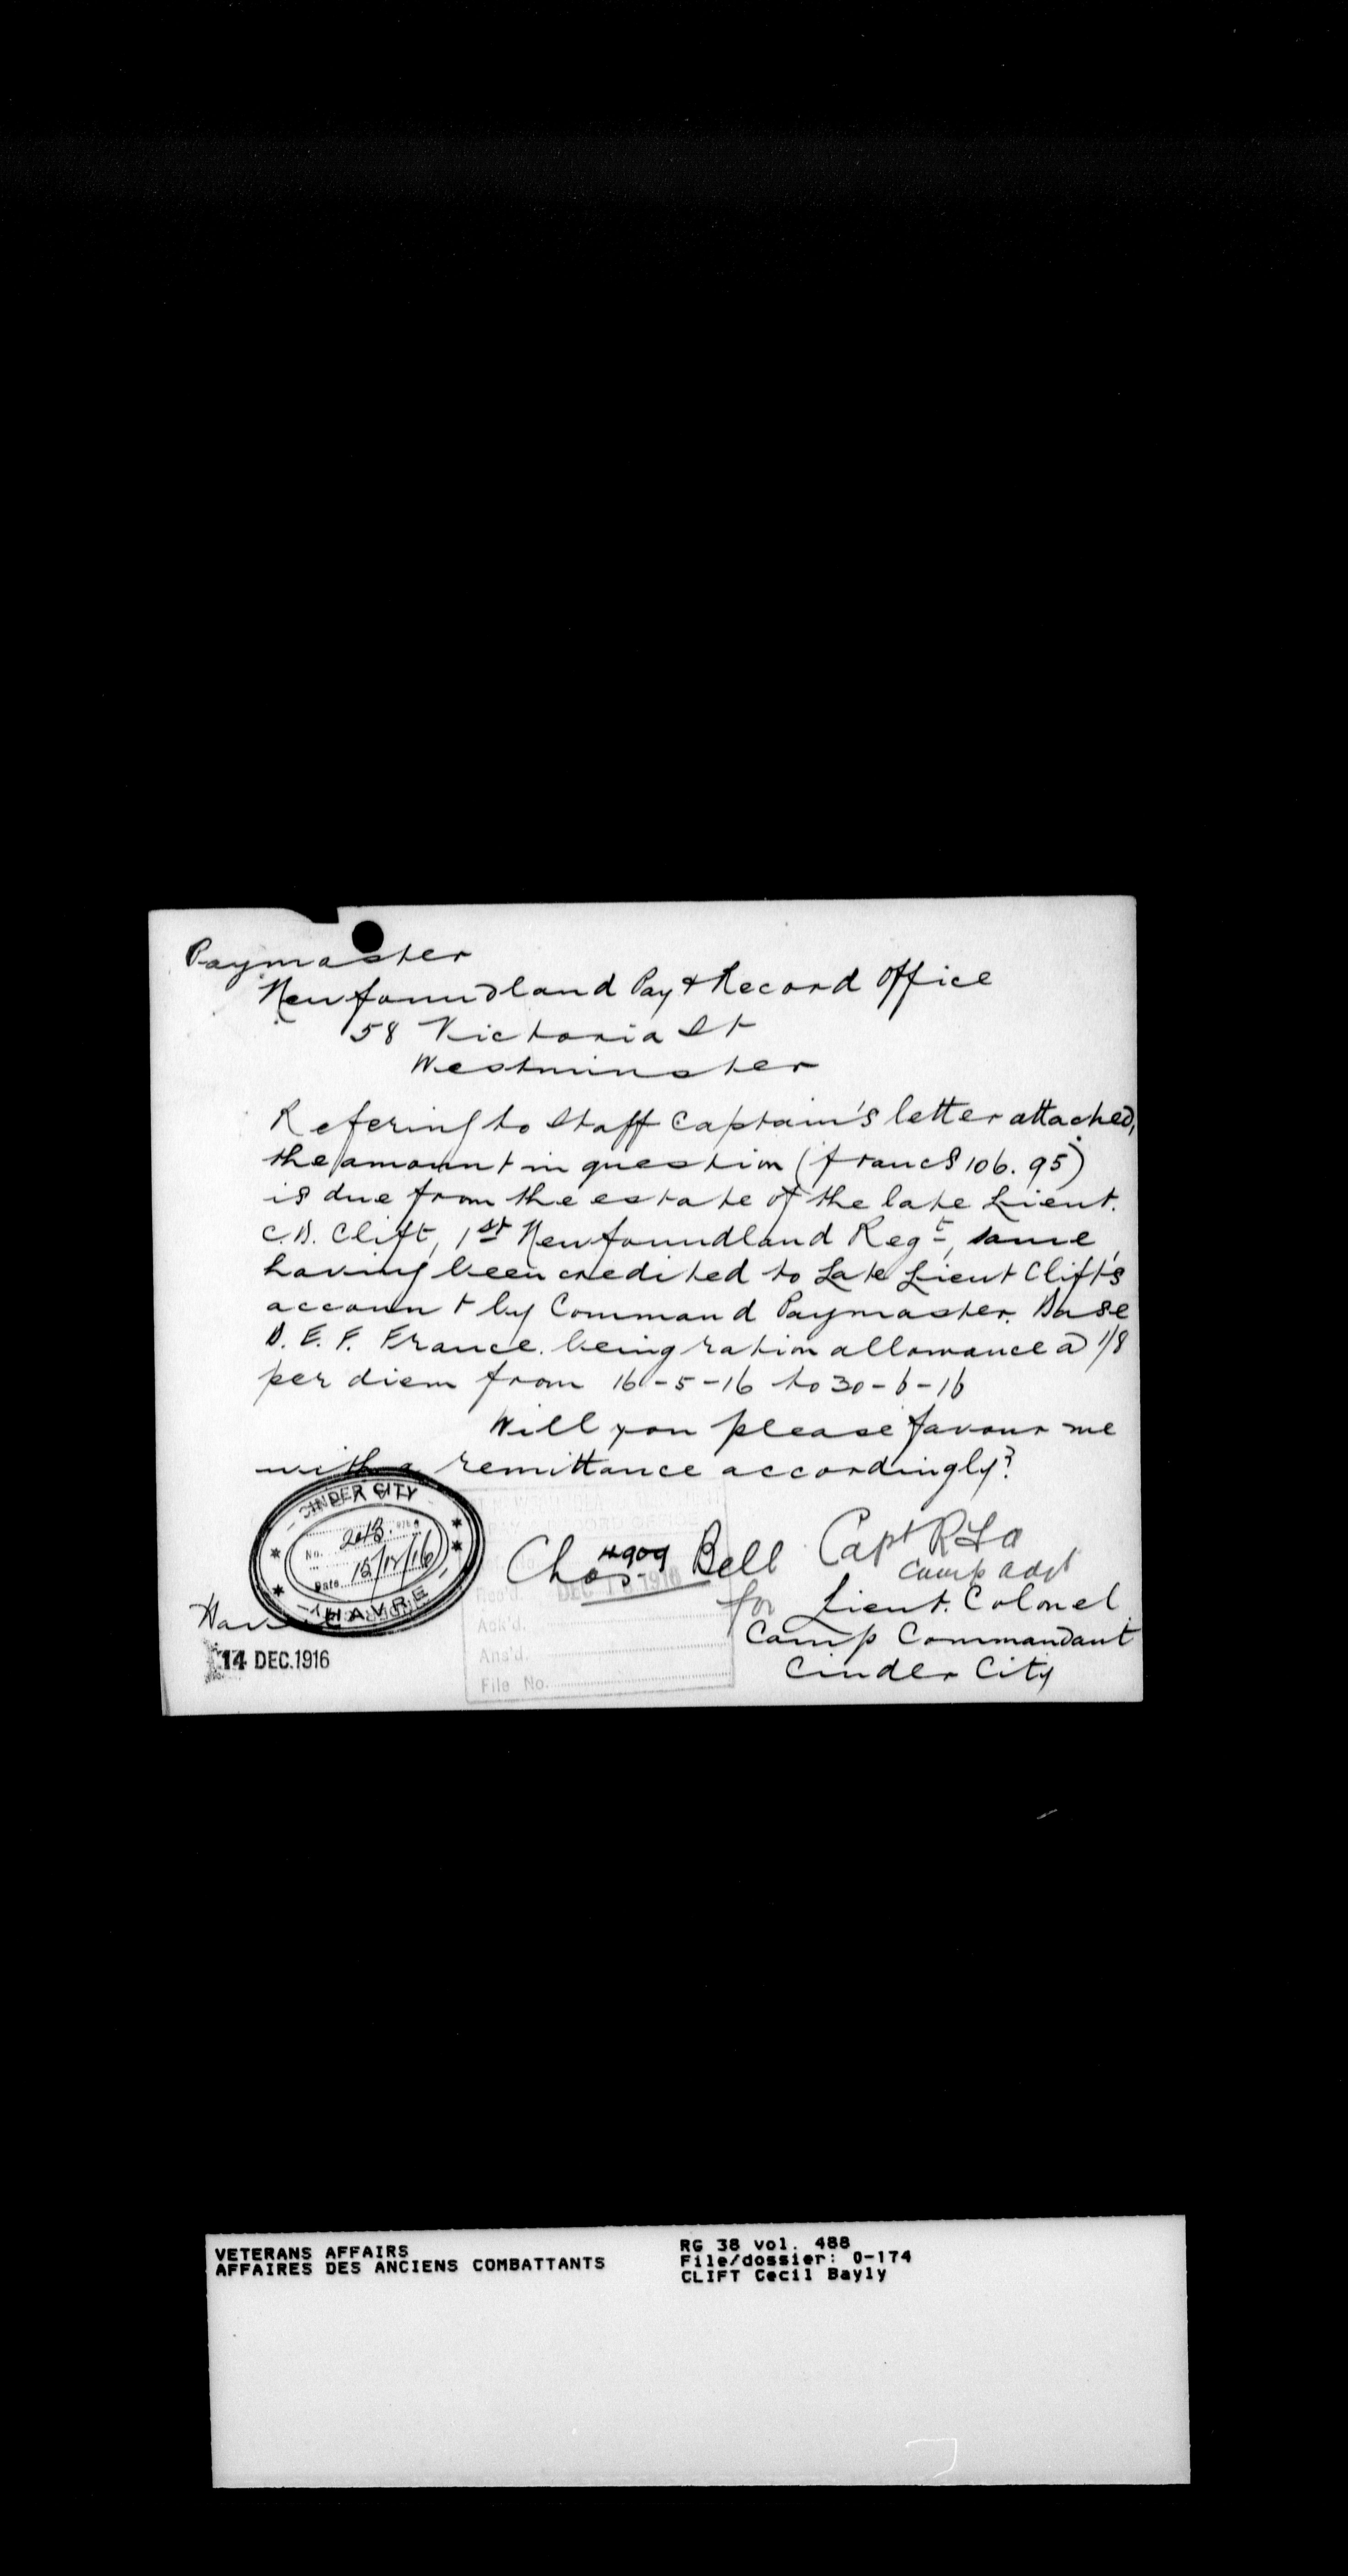 Paymaster
Newfoundland Pay & Record Office
58 Victoria St
Westminster
Refering to Staff Captain's letter attached,
the amount in question (francs 106.95)
is due from the estate of the late Lieut.
C.B. Clift, 1st Newfoundland Regt, same
having been credited to Late Lieut Clift's
account by Command Paymaster. Base
B.E.F. France. being ration allowance @ 1/8
per diem from 16-5-16 to 30-6-16
Will you please favour me
with a remittance accordingly?
CINDER CITY
No. 2013
Date 15/12/16
HAVRE
14 DEC. 1916
4909
DEC 18 1916
Rec'd.
Ack'd.
Ans'd.
File No.
Chas Bell Capt RGA
Camp Adjt
for Lieut. Colonel
Camp Commandant
Cinder City
VETERANS AFFAIRS
AFFAIRES DES ANCIENS COMBATTANTS
RG 38 vol. 488
File/dossier: O-174
CLIFT Cecil Bayly